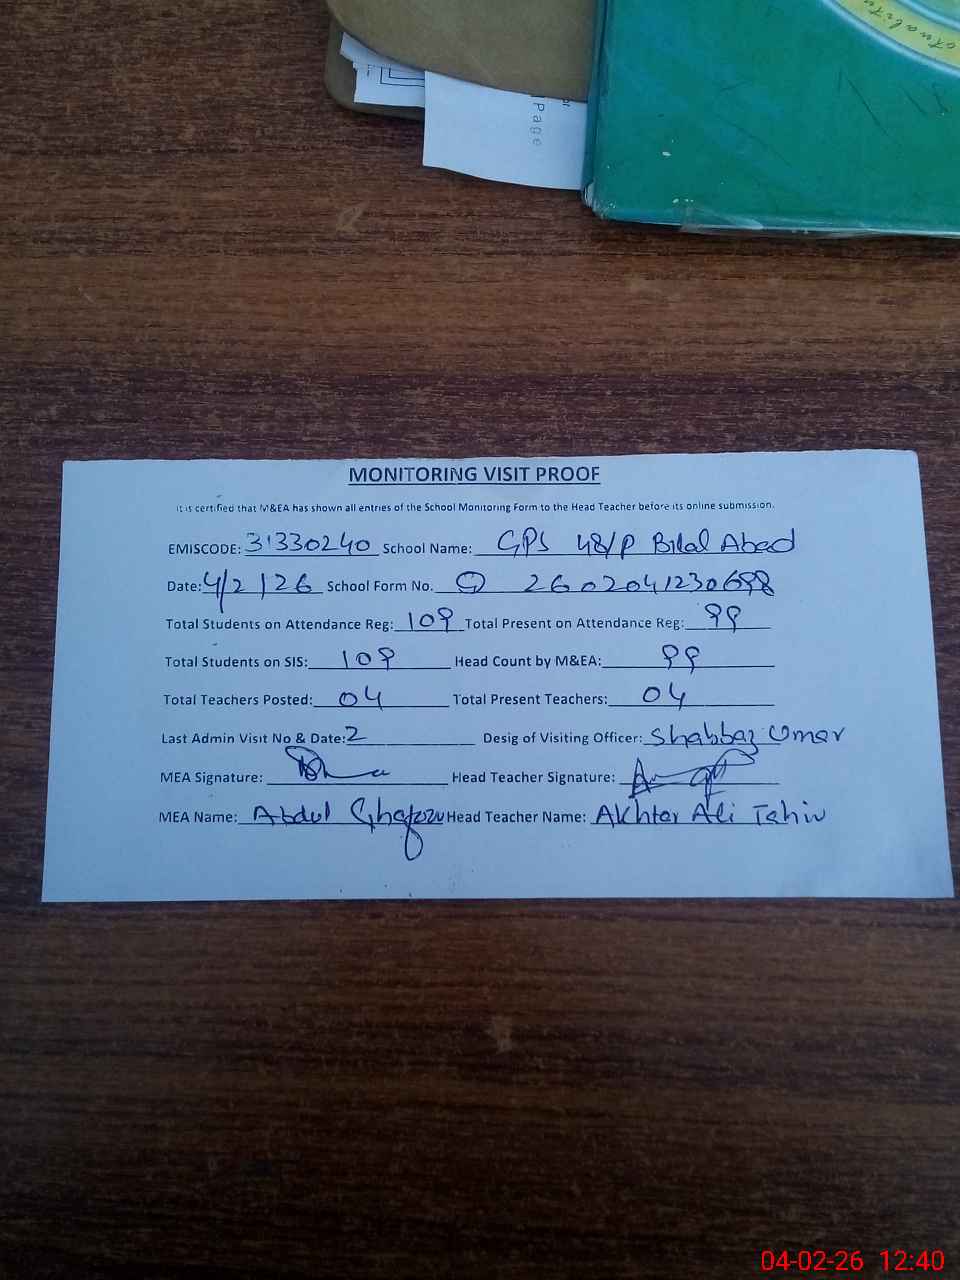 otuality
Page
MONITORING VISIT PROOF
It is certified that M&EA has shown all entries of the School Monitoring Form to the Head Teacher before its online submission.
EMISCODE: 31330240 School Name: GPS 48/P Bilal Abad
Date: 4/2/26 School Form No. 2602041230698
Total Students on Attendance Reg: 109 Total Present on Attendance Reg: 99
Total Students on SIS: 109 Head Count by M&EA: 99
Total Teachers Posted: 04 Total Present Teachers: 04
Last Admin Visit No & Date: 2 Desig of Visiting Officer: Shabbaz Umar
MEA Signature: Head Teacher Signature:
MEA Name: Abdul Ghafoor Head Teacher Name: Akhtar Ali Tahir
04-02-26 12:40